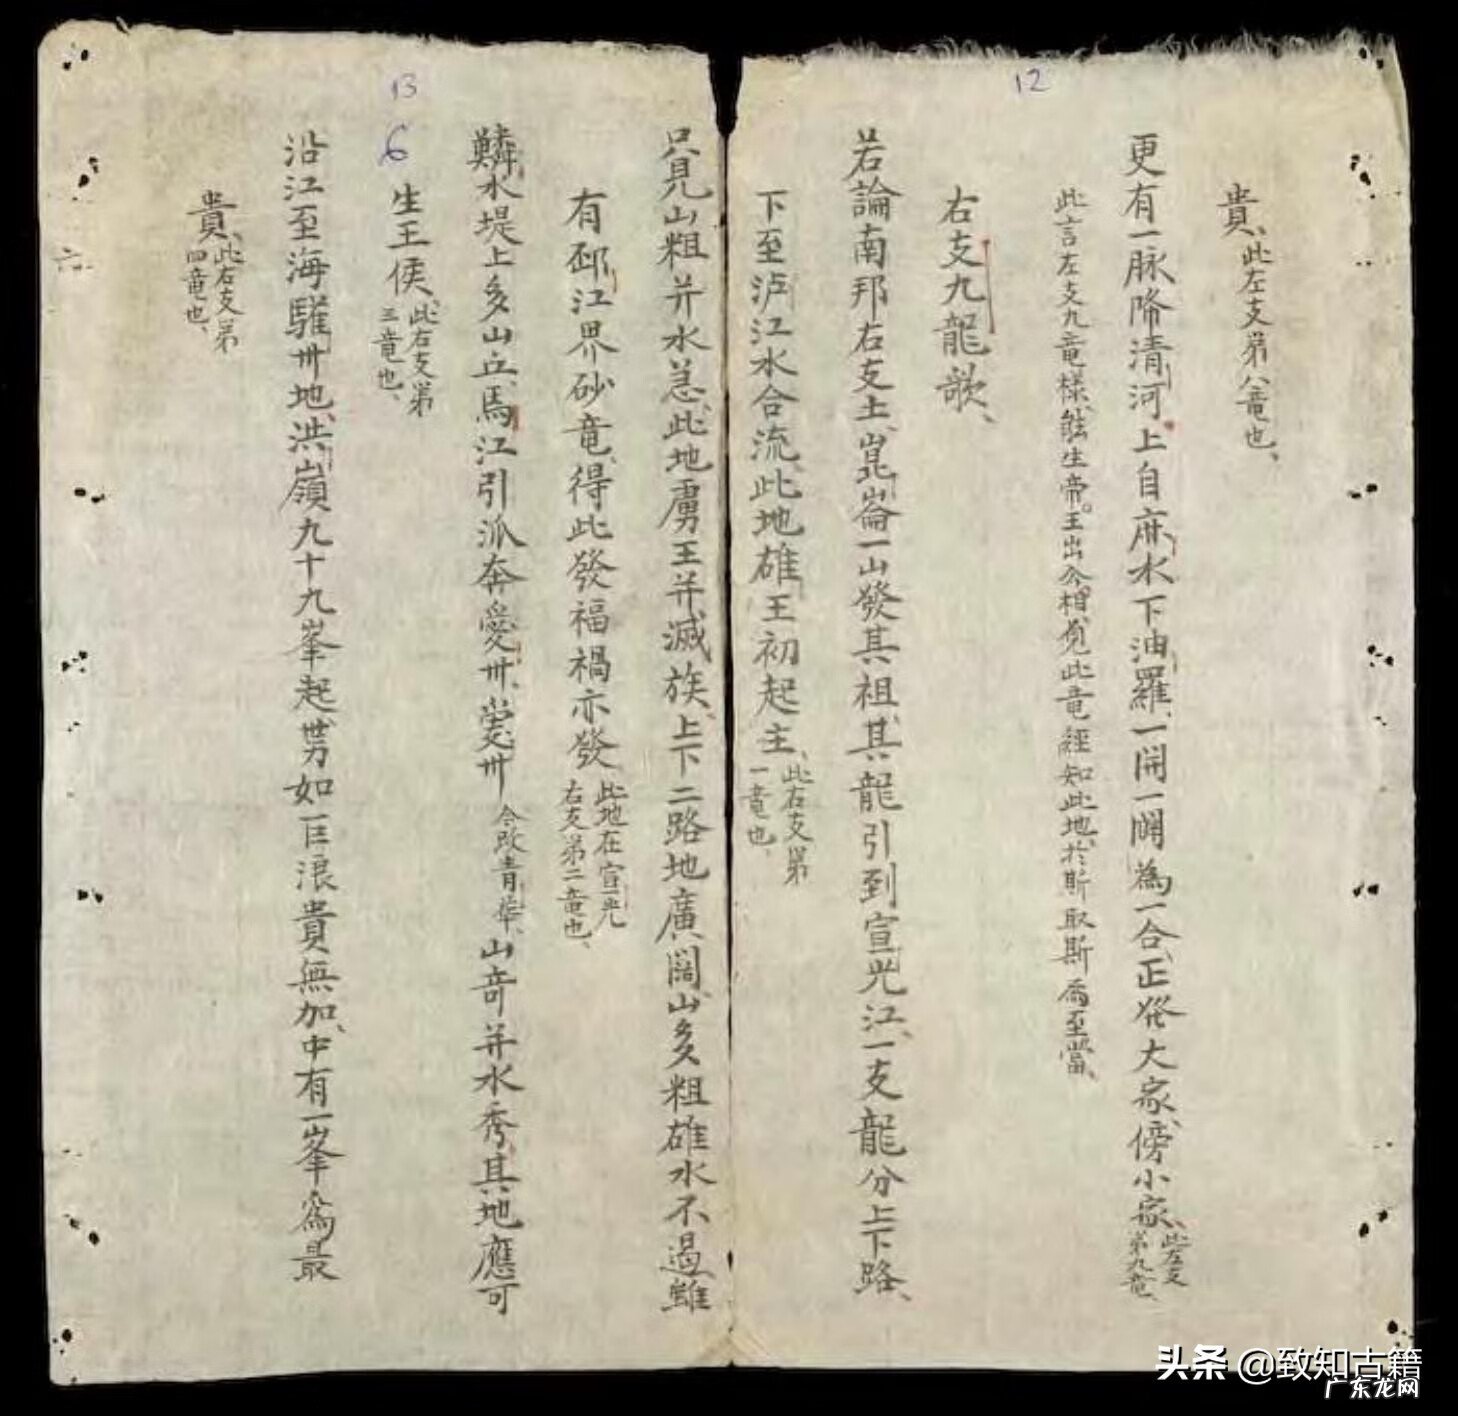 12
貴、此左支弟八竜也、
更有一脉降清河上自麻水下油羅、一開一關為一合、正發大家傍小家、此左支第九竜、
此言左支九竜樣、能生帝王出公相、覓此竜經知此地、於斯取斯為至當、
右支九龍歌、
若論南邦右支土、崑崙一山發其祖、其龍引到宣光江、一支龍分上下路、
下至泸江水合流、此地雄王初起主、此右支弟一竜也、
13
只見山粗并水急、此地虜王并滅族、上下二路地廣闊、山多粗雄水不過雖
有邳江界砂竜、得此發福禍亦發此地在宣光右支弟二竜也、
水堤上多山丘、馬江引派奔愛卅、崇卅今改青華、山奇并水秀、其地應可
6
生王侯、此右支弟三竜也、
沿江至海驩卅地、洪嶺九十九峯起、势如巨浪貴無加、中有一峯為最
貴、此右支弟四竜也、
头条 @致知古籍
广东龙网